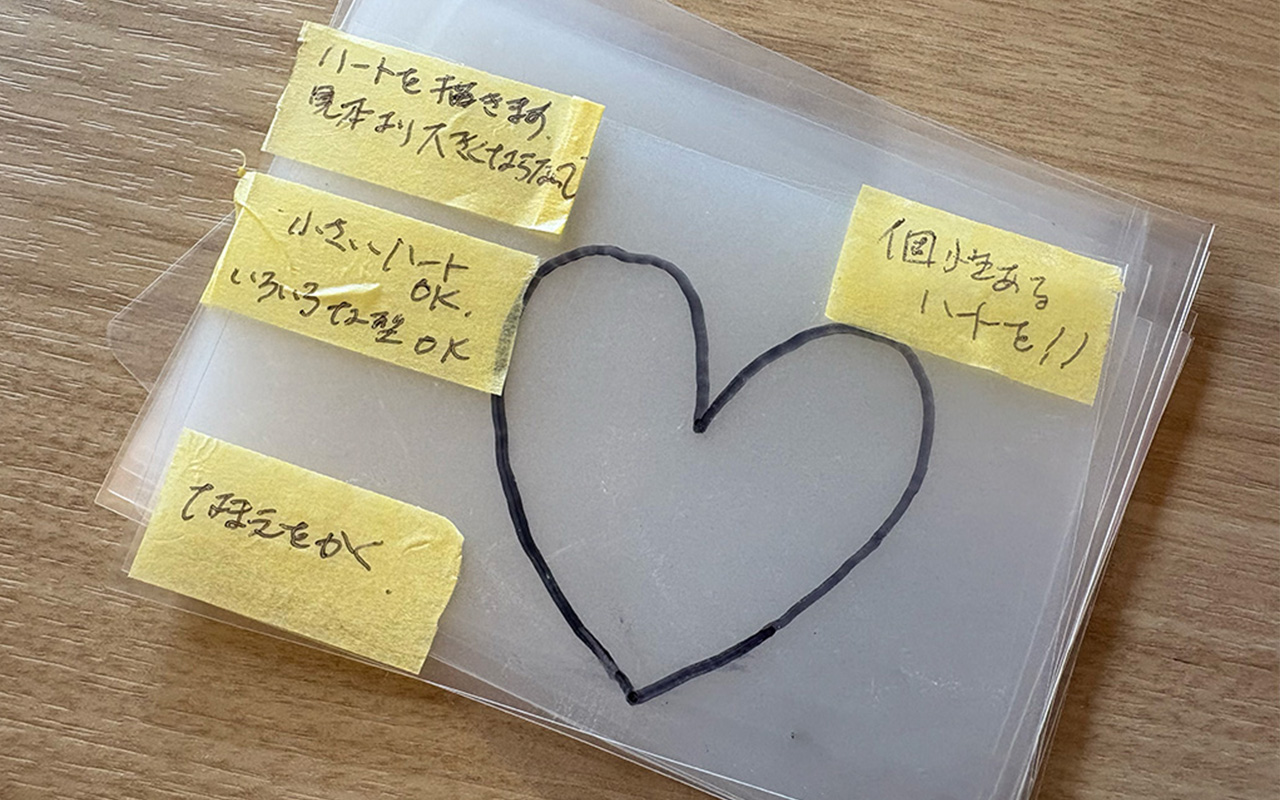 ハートを描きます。
見本より大きくならないで
小さいハート
OK.
いろいろな型OK
なまえをかく
個性ある
ハートを!!